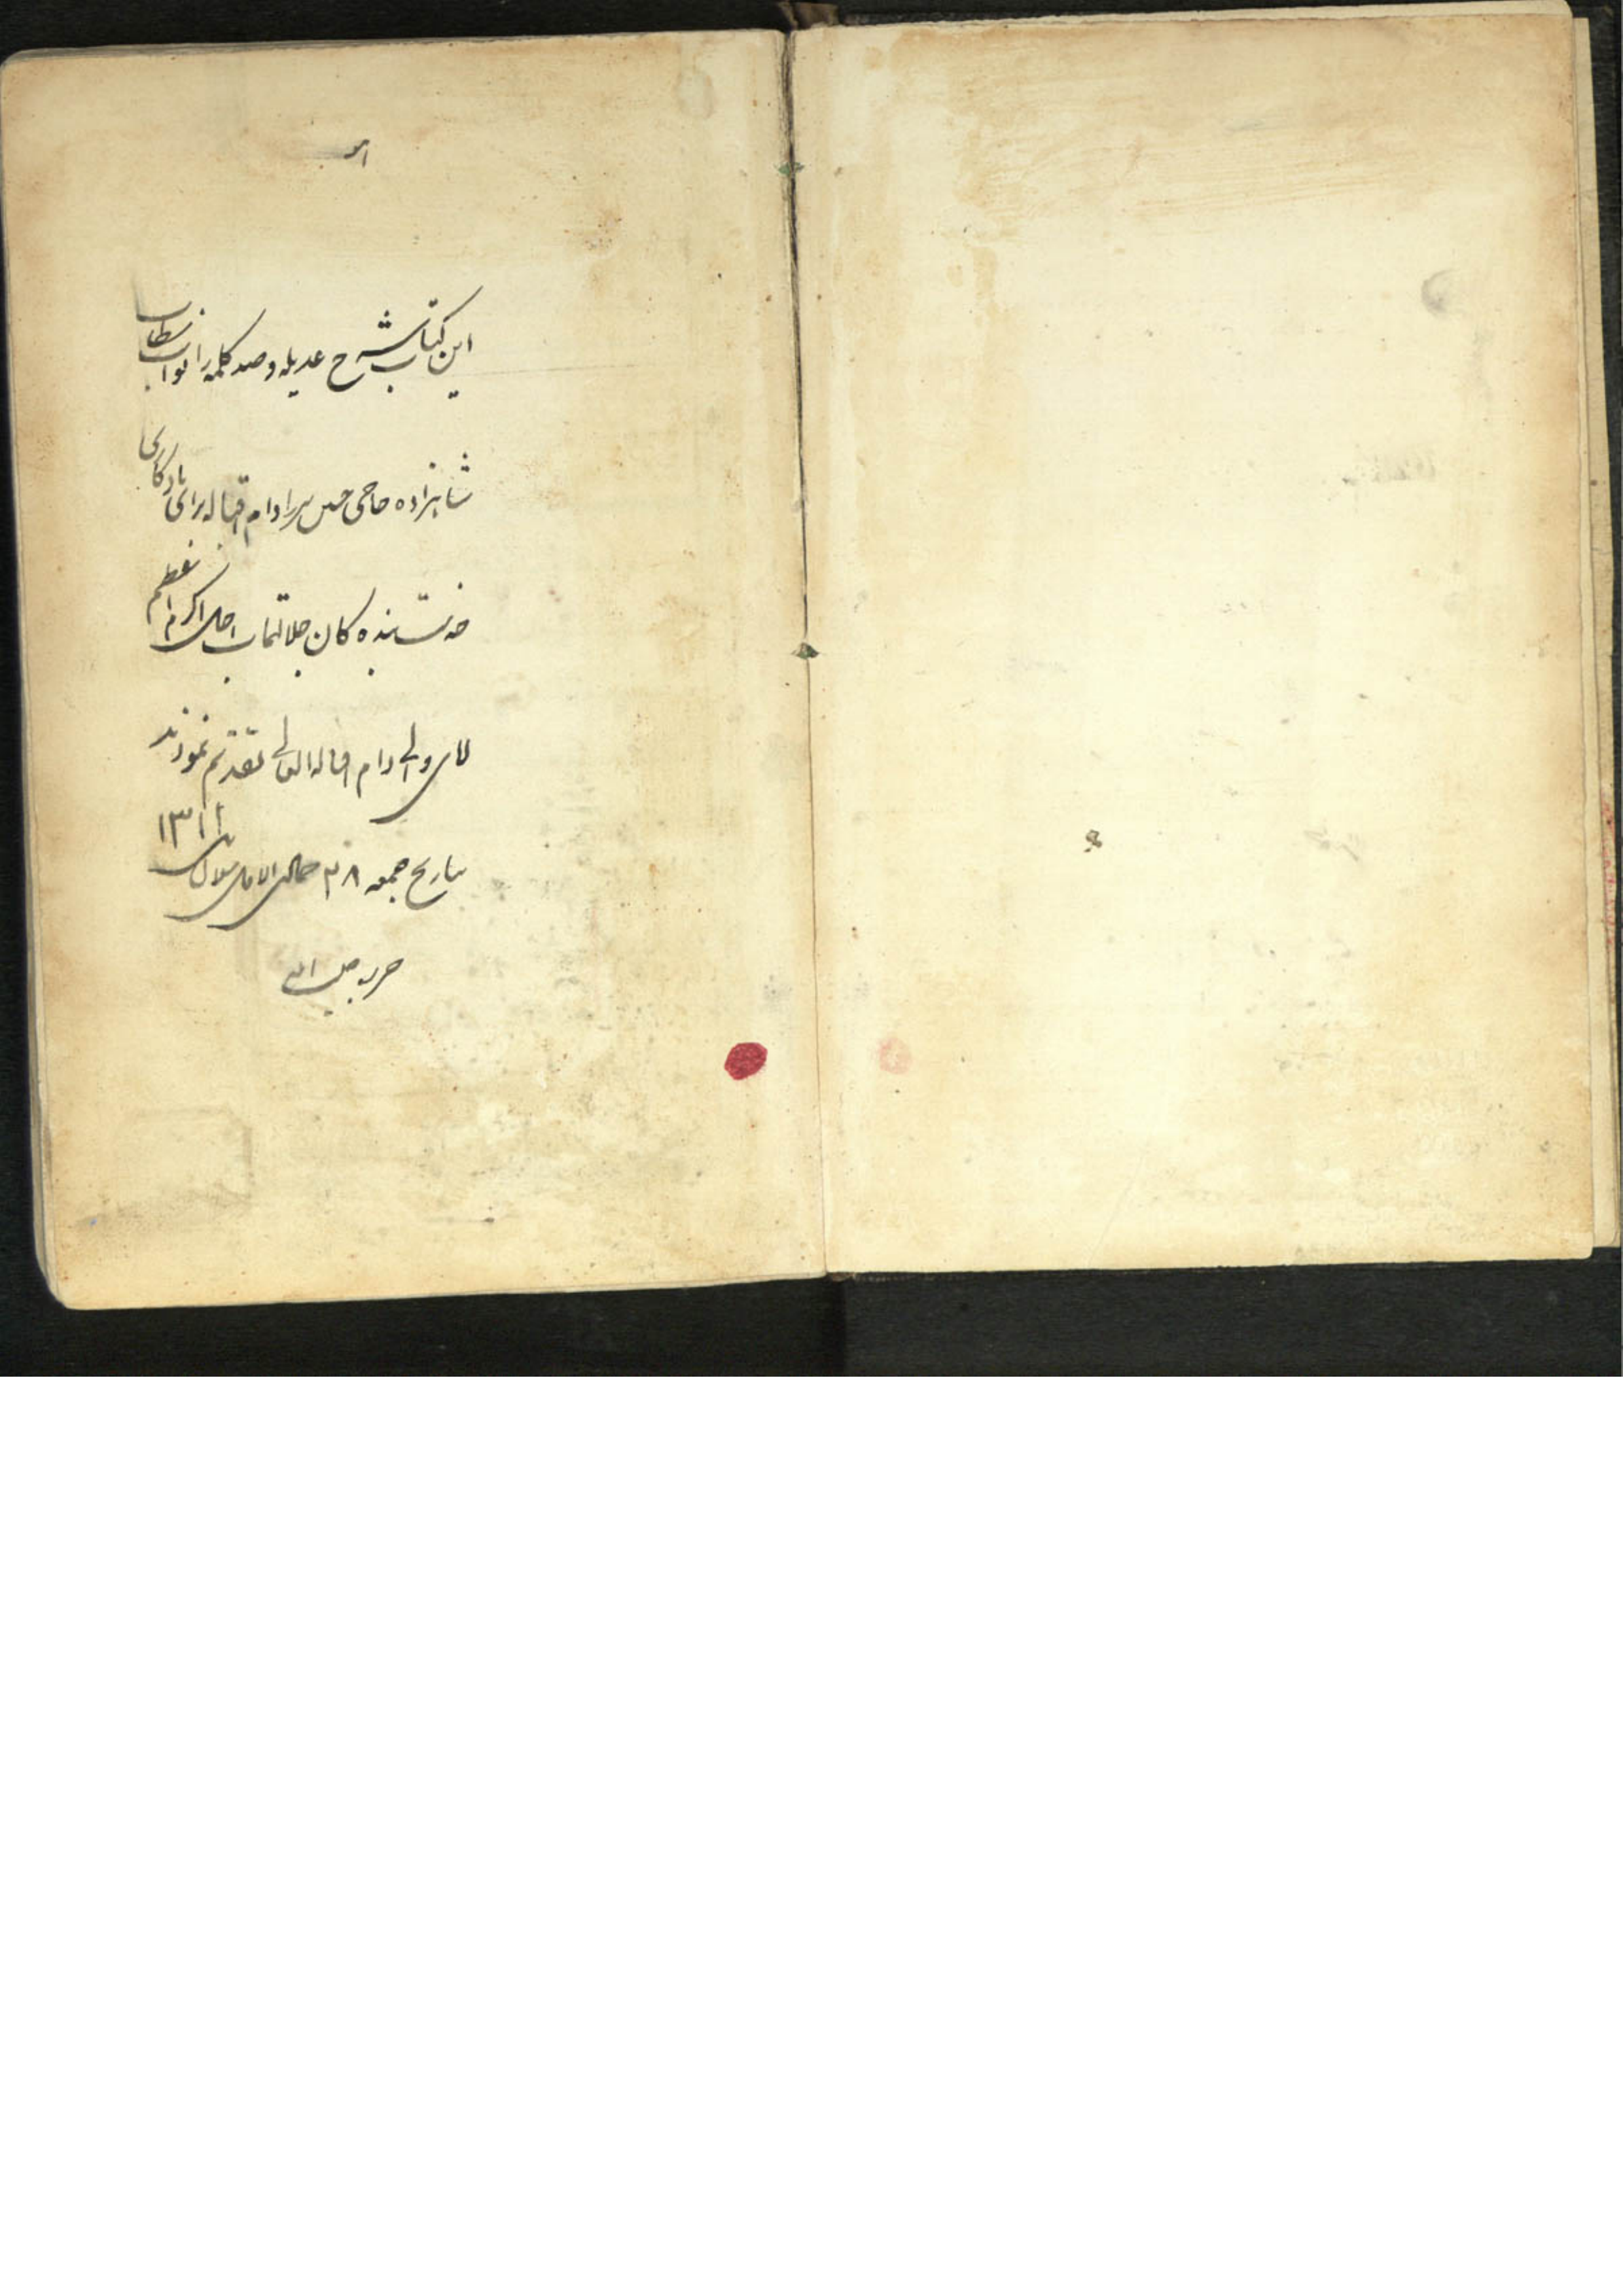 هو
این کتاب شرح عدیله و صد کلمه را نواب مستطاب
شاهزاده حاجی حسن میرزا دام اقباله برای یادگاری
خدمت بنده کان جلالتمآب اجل اکرم افخم
آقای والی دام اقباله العالی تقدیم نمودند
بتاریخ جمعه ۲۸ جمادی الاولی سنه ۱۳۱۱
حرره